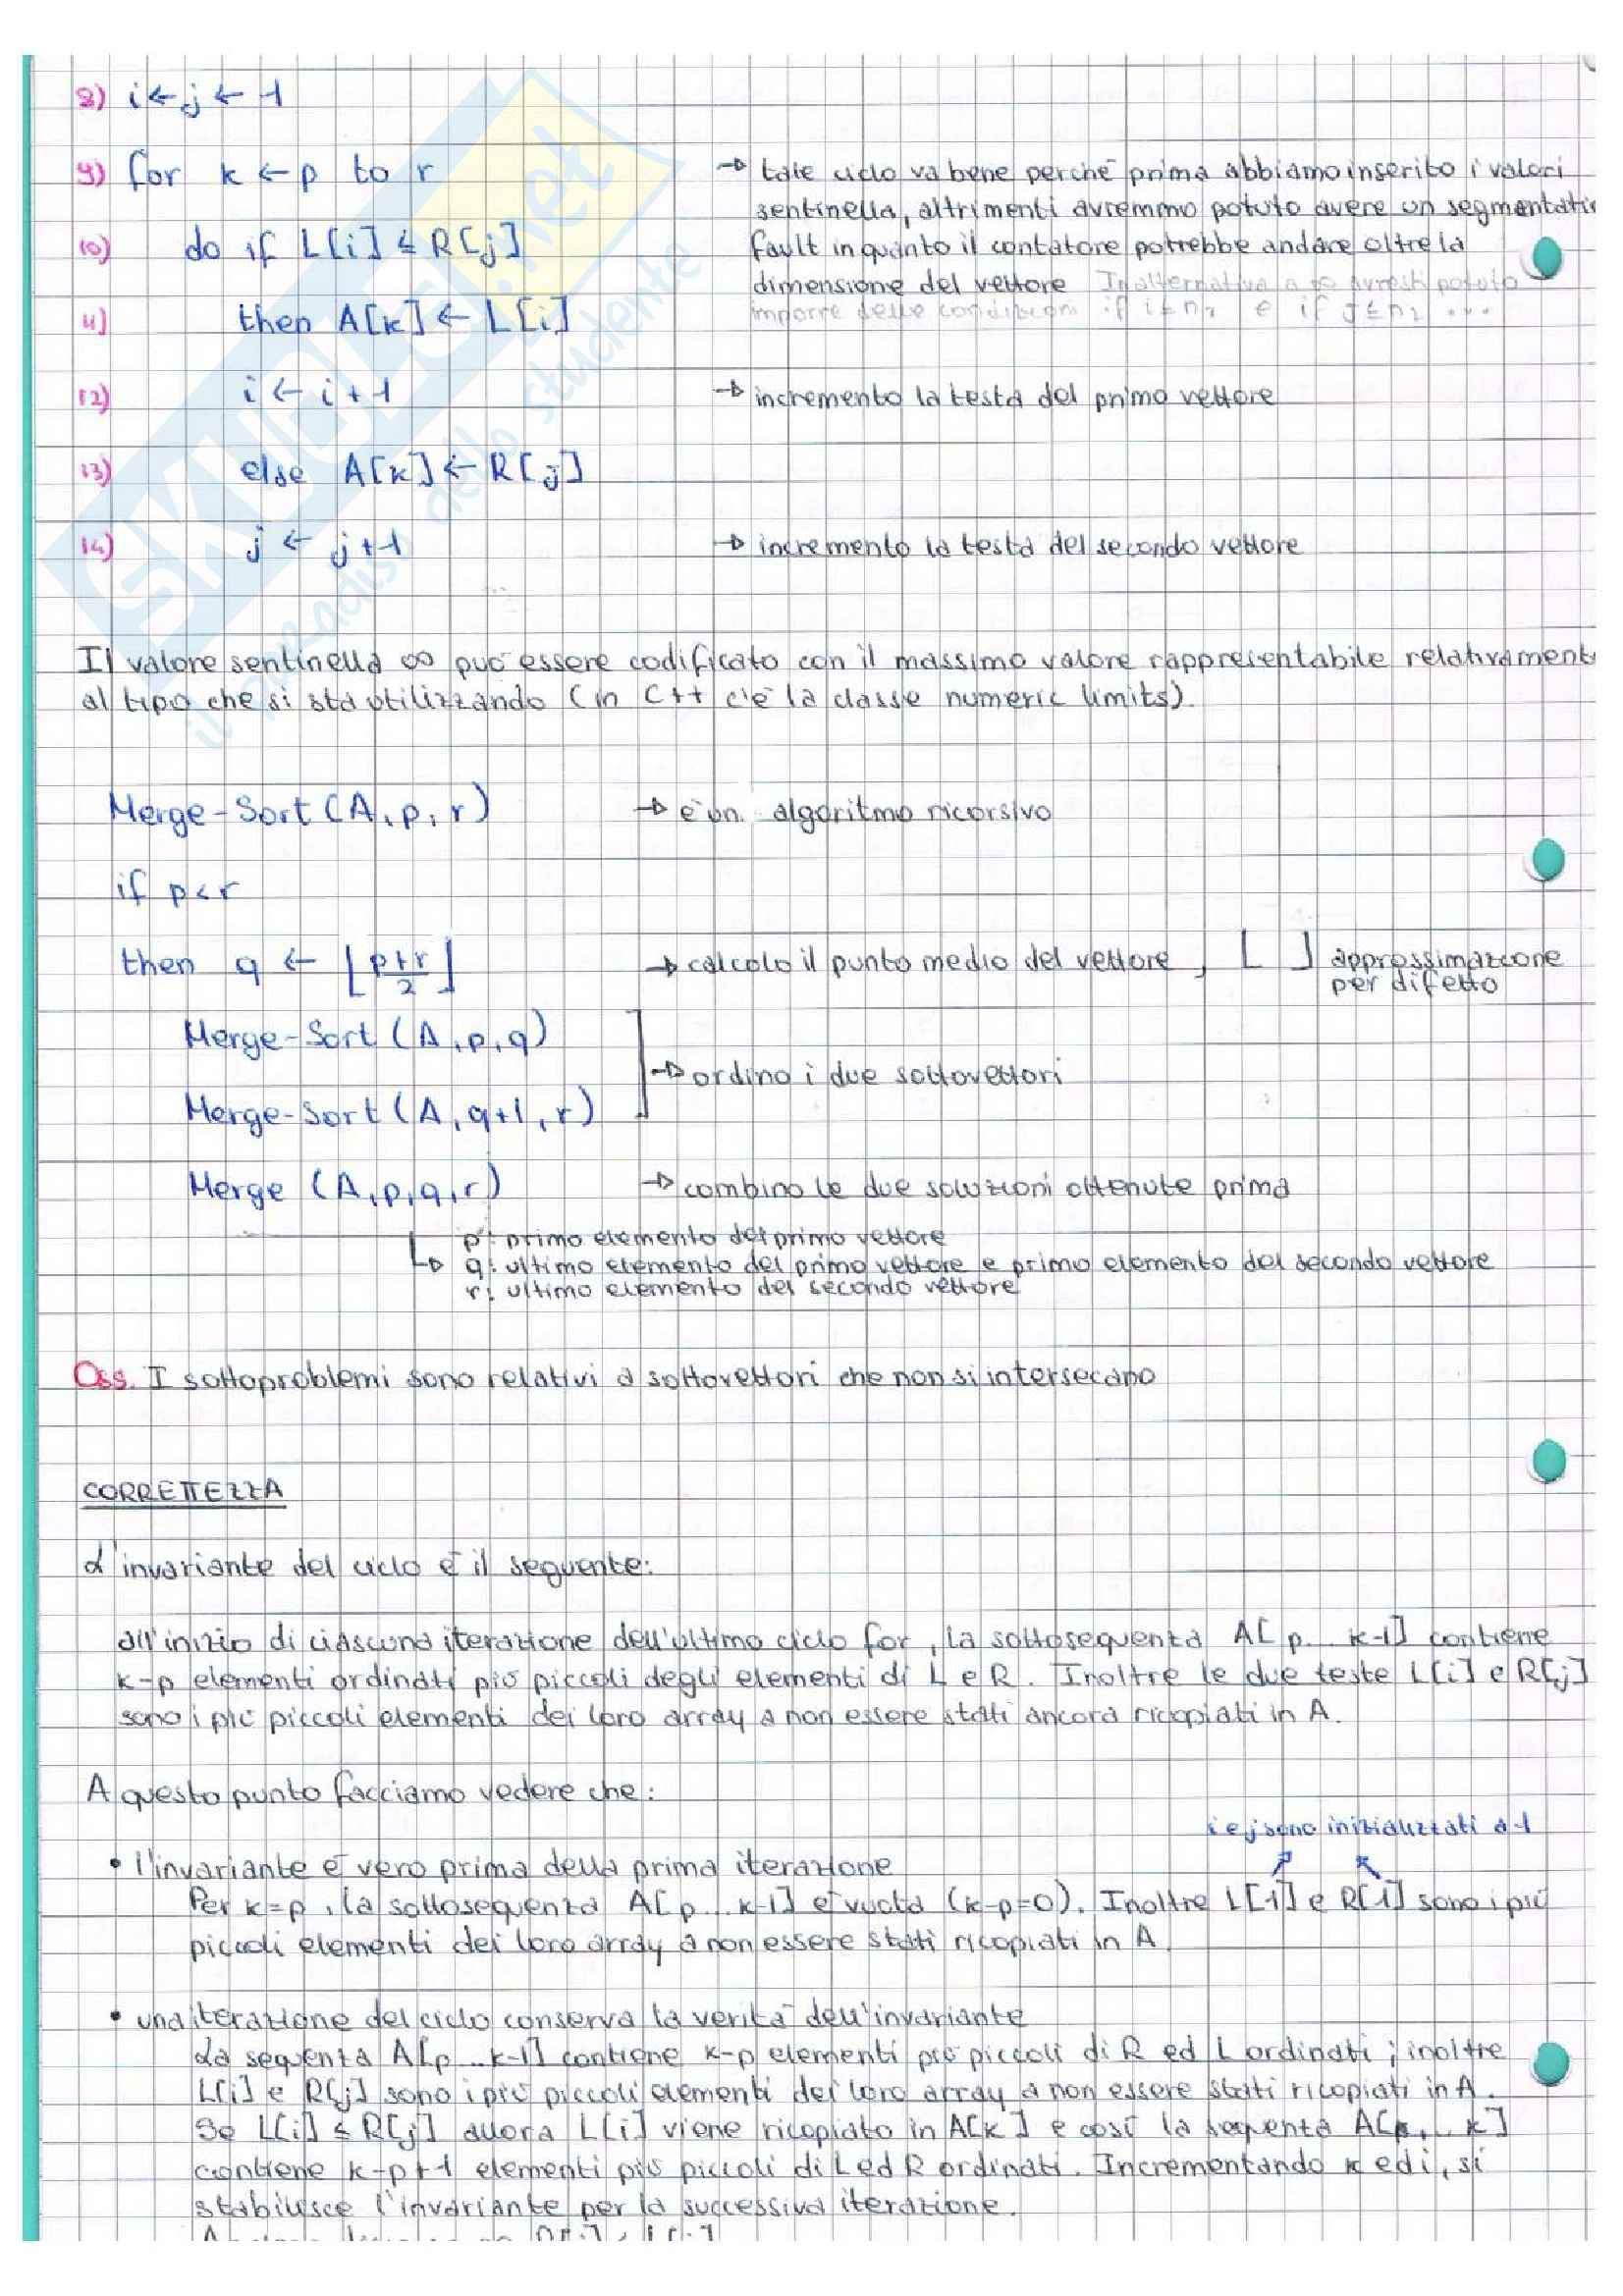 8) i ← j ← 1
9) for k ← p to r → tale ciclo va bene perché prima abbiamo inserito i valori
sentinella, altrimenti avremmo potuto avere un segmentatio
10) do if L[i] ≤ R[j] fault in quanto il contatore potrebbe andare oltre la
dimensione del vettore In alternativa a ciò avresti potuto
11) then A[k] ← L[i] imporre delle condizioni if i ≤ n₁ e if j ≤ n₂ ...
12) i ← i + 1 → incremento la testa del primo vettore
13) else A[k] ← R[j]
14) j ← j + 1 → incremento la testa del secondo vettore
SKUOLA.net
il paradiso dello studente
Il valore sentinella ∞ può essere codificato con il massimo valore rappresentabile relativament
al tipo che si sta utilizzando (in C++ c'è la classe numeric limits).
Merge-Sort (A, p, r) → è un algoritmo ricorsivo
if p < r
then q ← ⌊(p+r)/2⌋ → calcolo il punto medio del vettore, ⌊ ⌋ approssimazione
per difetto
Merge-Sort (A, p, q)
→ ordino i due sottovettori
Merge-Sort (A, q+1, r)
Merge (A, p, q, r) → combino le due soluzioni ottenute prima
p: primo elemento del primo vettore
q: ultimo elemento del primo vettore e primo elemento del secondo vettore
r: ultimo elemento del secondo vettore
Oss. I sottoproblemi sono relativi a sottovettori che non si intersecano
CORRETTEZZA
L'invariante del ciclo è il seguente:
all'inizio di ciascuna iterazione dell'ultimo ciclo for, la sottosequenza A[p...k-1] contiene
k-p elementi ordinati più piccoli degli elementi di L e R. Inoltre le due teste L[i] e R[j]
sono i più piccoli elementi dei loro array a non essere stati ancora ricopiati in A.
A questo punto facciamo vedere che:
i e j sono inizializzati a 1
• l'invariante è vero prima della prima iterazione
Per k=p, la sottosequenza A[p...k-1] è vuota (k-p=0). Inoltre L[1] e R[1] sono i più
piccoli elementi dei loro array a non essere stati ricopiati in A.
• una iterazione del ciclo conserva la verità dell'invariante
La sequenza A[p...k-1] contiene k-p elementi più piccoli di R ed L ordinati; inoltre
L[i] e R[j] sono i più piccoli elementi dei loro array a non essere stati ricopiati in A.
Se L[i] ≤ R[j] allora L[i] viene ricopiato in A[k] e così la sequenza A[p...k]
contiene k-p+1 elementi più piccoli di L ed R ordinati. Incrementando k ed i, si
stabilisce l'invariante per la successiva iterazione.